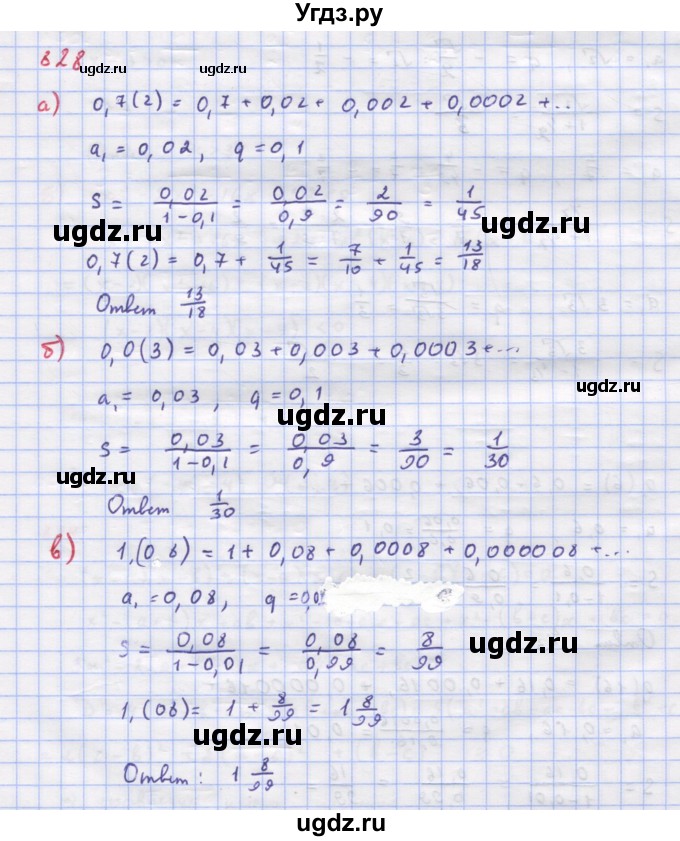 Угдз.ру
828
ugdz.ru ugdz.ru
а) 0,7(2) = 0,7 + 0,02 + 0,002 + 0,0002 + ..
a₁ = 0,02, q = 0,1
S = 0,02/1-0,1 = 0,02/0,9 = 2/90 = 1/45
ugdz.ru ugdz.ru
0,7(2) = 0,7 + 1/45 = 7/10 + 1/45 = 13/18
Ответ 13/18
б) 0,0(3) = 0,03 + 0,003 + 0,0003 + ...
ugdz.ru
a₁ = 0,03, q = 0,1
ugdz.ru
S = 0,03/1-0,1 = 0,03/0,9 = 3/90 = 1/30
ugdz.ru
Ответ 1/30
в) 1,(08) = 1 + 0,08 + 0,0008 + 0,000008 + ...
a₁ = 0,08, q = 0,01
S = 0,08/1-0,01 = 0,08/0,99 = 8/99
ugdz.ru
1,(08) = 1 + 8/99 = 1 8/99
ugdz.ru
Ответ: 1 8/99
ugdz.ru
ugdz.ru